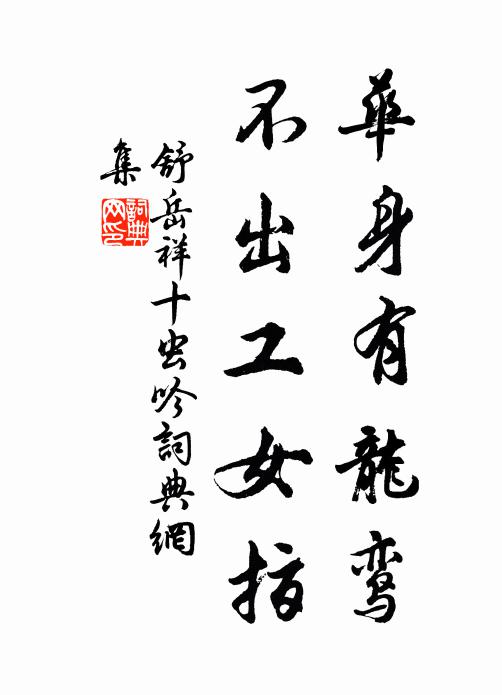 華身有龍鸾
不出工女指
舒岳祥十虫吟詞典網
集
詞典
网印